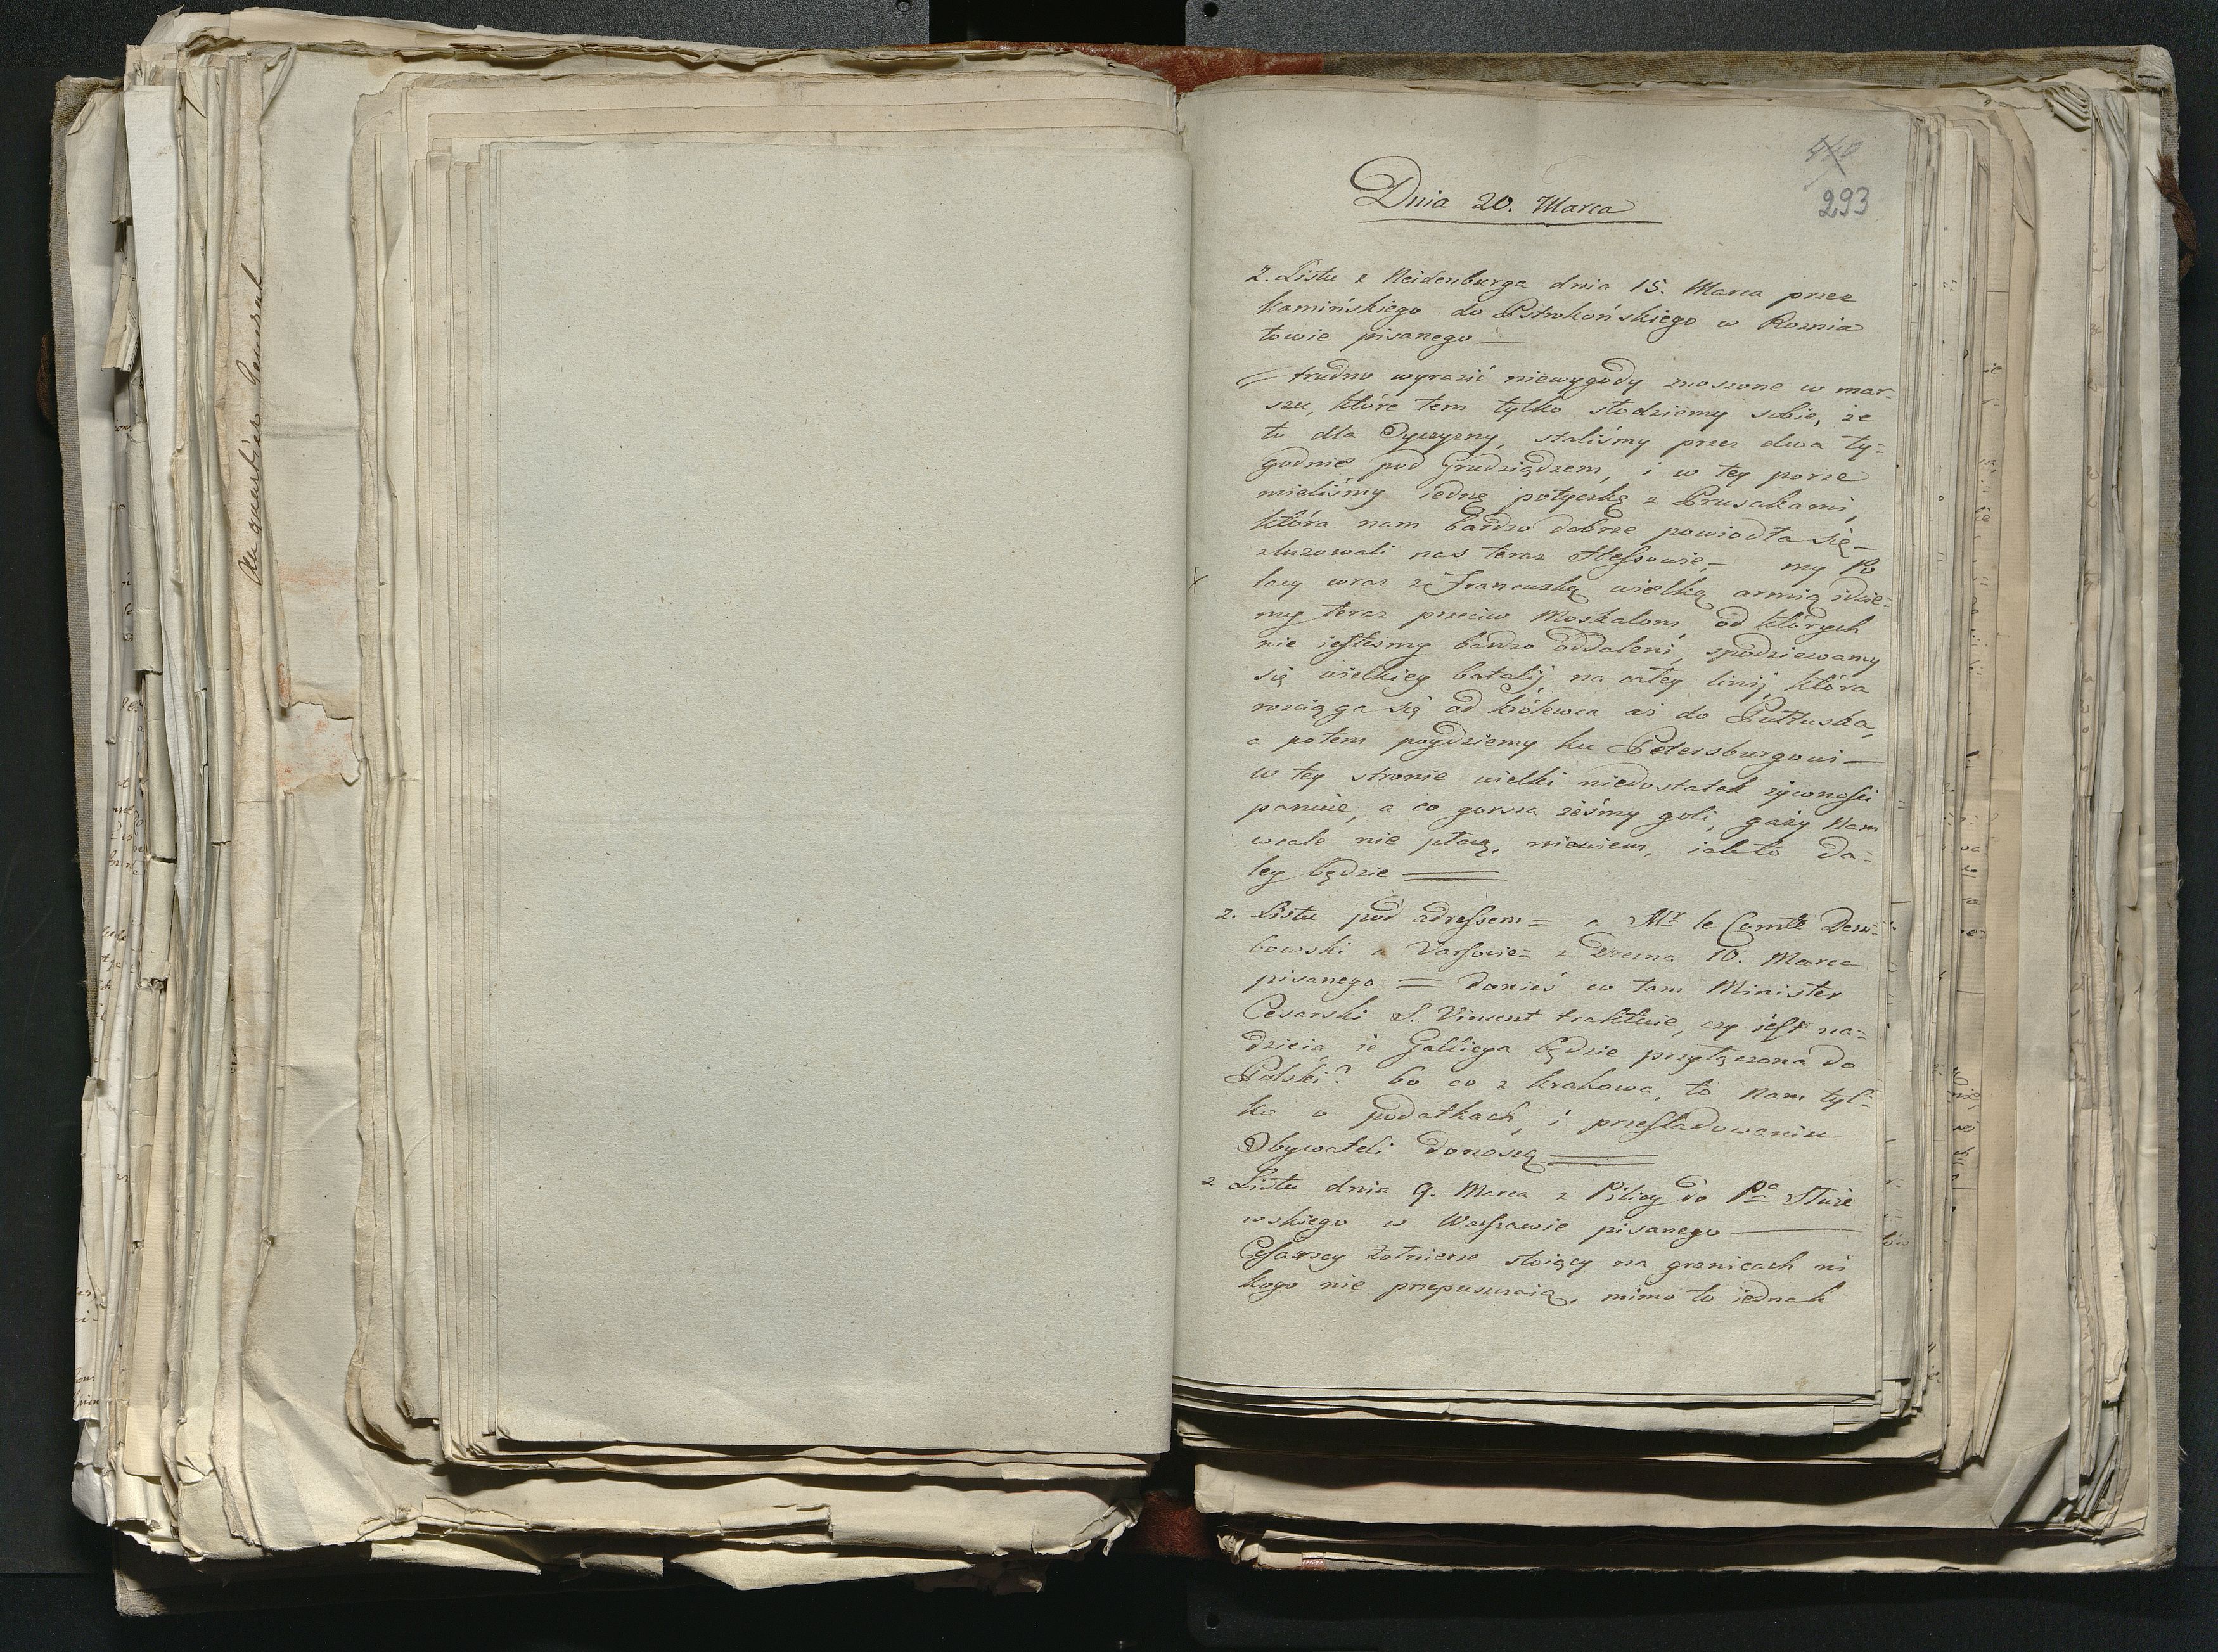 Au quartier General
440
293
Dnia 20. Marca
Z. Listu z Neidenburga dnia 15. Marca przez
Kamińskiego do Pstrokońskiego w Roznia
towie pisanego —
trudno wyrazić niewygody znoszone w mar-
szu, które tem tylko słodziemy sobie, że
to dla Oyczyzny, staliśmy przez dwa ty=
godnie pod Grudziądzem, i w tey porze
mieliśmy iednę potyczkę z Prusakami,
która nam bardzo dobrze powiodła się —
zluzowali nas teraz Hessowie, — my Po
lacy wraz z Francuską wielką armią idzie=
my teraz przeciw Moskalom, od których
nie jesteśmy bardzo oddaleni, spodziewamy
się wielkiey batalij na całey linij, która
rozciąga się od Królewca aż do Pułtuska,
a potem poydziemy ku Petersburgowi —
w tey stronie wielki niedostatek żywności
panuie, a co gorsza żeśmy goli, gaży nam
wcale nie płacą, niewiem, iak to da=
ley będzie
z. Listu pod adressem = a Mr le Comte Dem=
bowski a Varsovie = z Drezna 10. Marca
pisanego = donieś co tam Minister
Cesarski S. Vincent traktuie, czy jest na=
dzieia, że Gallicya będzie przyłączona do
Polski? bo co z Krakowa, to nam tyl=
ko o podatkach, i prześladowaniu
Obywateli donoszą
z Listu dnia 9. Marca z Pilicy do Pa Służe
wskiego w Warszawie pisanego —
Cesarscy żołnierze stoiący na granicach ni
kogo nie przepuszczaią, mimo to iednak